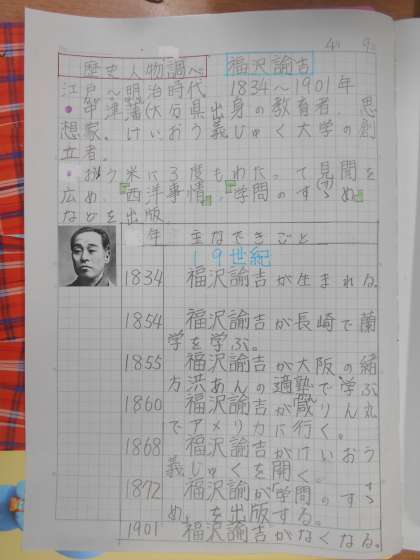 4月 9日
歴史人物調べ 福沢諭吉
江戸〜明治時代 1834〜1901年
中津藩(大分県出身の教育者、思
想家。けいおう義じゅく大学の創
立者。
おう米に3度もわたって見聞を
広め、「西洋事情」「学問のすゝめ」
などを出版。
年 主なできごと
19世紀
1834 福沢諭吉が生まれる。
1854 福沢諭吉が長崎で蘭
学を学ぶ。
1855 福沢諭吉が大阪の緒
方洪あんの適塾で学ぶ
1860 福沢諭吉が咸りん丸
でアメリカに行く。
1868 福沢諭吉がけいおう
義じゅくを開く。
1872 福沢諭吉が「学問のすゝ
め」を出版する。
1901 福沢諭吉がなくなる。